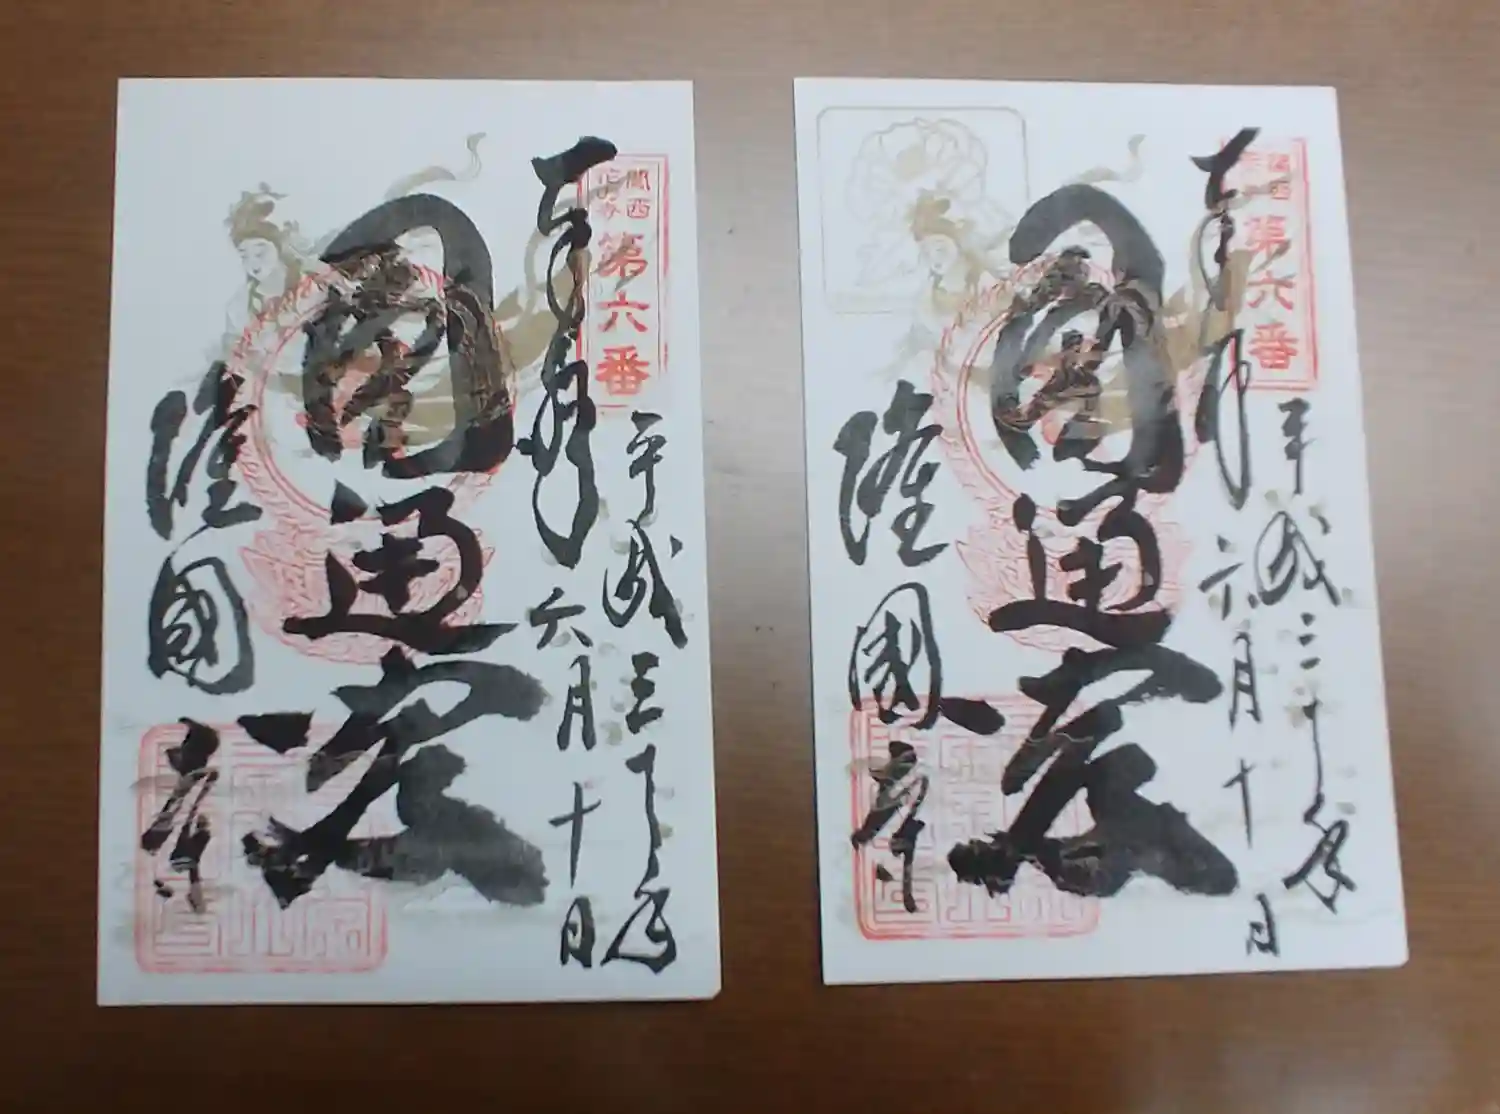 関西
花の寺
第六番
奉拝
平成三十年
六月十日
圓通
隆國寺
関西
第六番
奉拝
平成三十年
六月十日
圓通
隆國寺